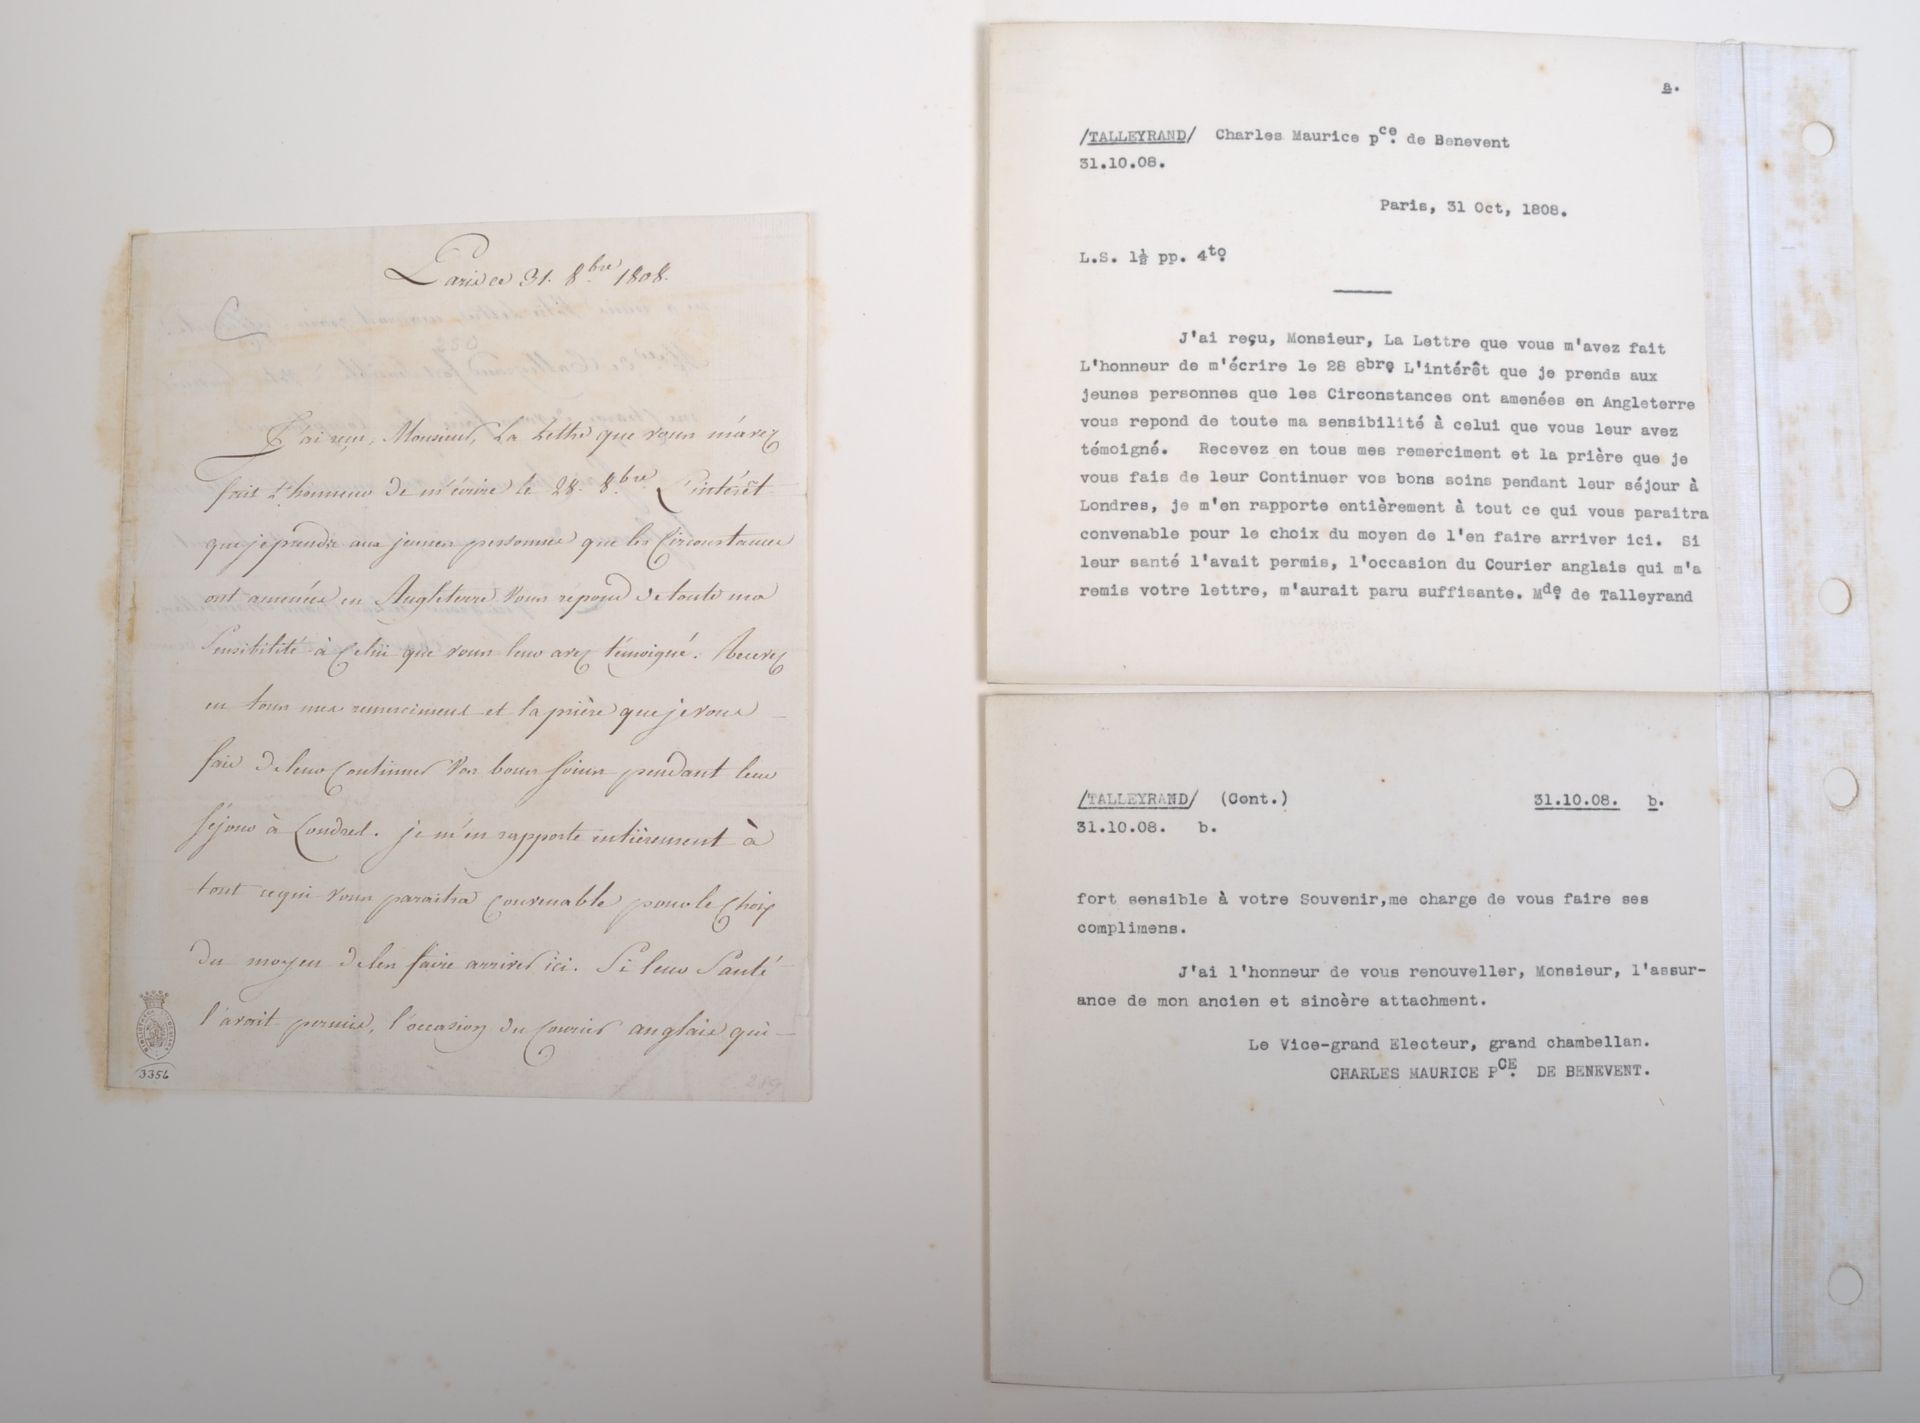 Paris ce 31. 8.bre 1808.
J'ai reçu, Monsieur, La Lettre que vous m'avez
fait L'honneur de m'écrire le 28. 8.bre L'intérêt
que je prends aux jeunes personnes que les Circonstances
ont amenées en Angleterre vous répond de toute ma
Sensibilité à Celui que vous leur avez témoigné. Recevez
en tous mes remerciment et la prière que je vous
fais de leur Continuer vos bons soins pendant leur
séjour à Londres. je m'en rapporte entièrement à
tout ce qui vous paraitra Convenable pour le Choix
du moyen de les faire arriver ici. Si leur Santé
l'avait permis, l'occasion du Courier anglais qui
3356
a.
/TALLEYRAND/ Charles Maurice pce. de Benevent
31.10.08.
Paris, 31 Oct, 1808.
L.S. 1½ pp. 4to.
J'ai reçu, Monsieur, La Lettre que vous m'avez fait
L'honneur de m'écrire le 28 8bre. L'intérêt que je prends aux
jeunes personnes que les Circonstances ont amenées en Angleterre
vous repond de toute ma sensibilité à celui que vous leur avez
témoigné. Recevez en tous mes remerciment et la prière que je
vous fais de leur Continuer vos bons soins pendant leur séjour à
Londres, je m'en rapporte entièrement à tout ce qui vous paraitra
convenable pour le choix du moyen de l'en faire arriver ici. Si
leur santé l'avait permis, l'occasion du Courier anglais qui m'a
remis votre lettre, m'aurait paru suffisante. Mde. de Talleyrand
/TALLEYRAND/ (Cont.) 31.10.08. b.
31.10.08. b.
fort sensible à votre Souvenir,me charge de vous faire ses
complimens.
J'ai l'honneur de vous renouveller, Monsieur, l'assur-
ance de mon ancien et sincère attachment.
Le Vice-grand Electeur, grand chambellan.
CHARLES MAURICE PCE. DE BENEVENT.